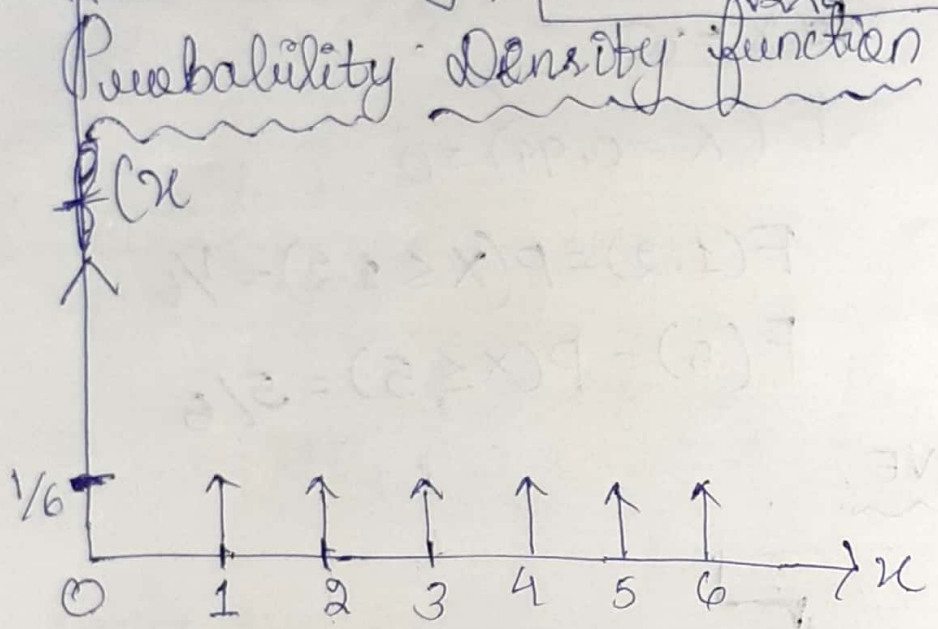 Probability Density function
f(x
1/6
0 1 2 3 4 5 6 x